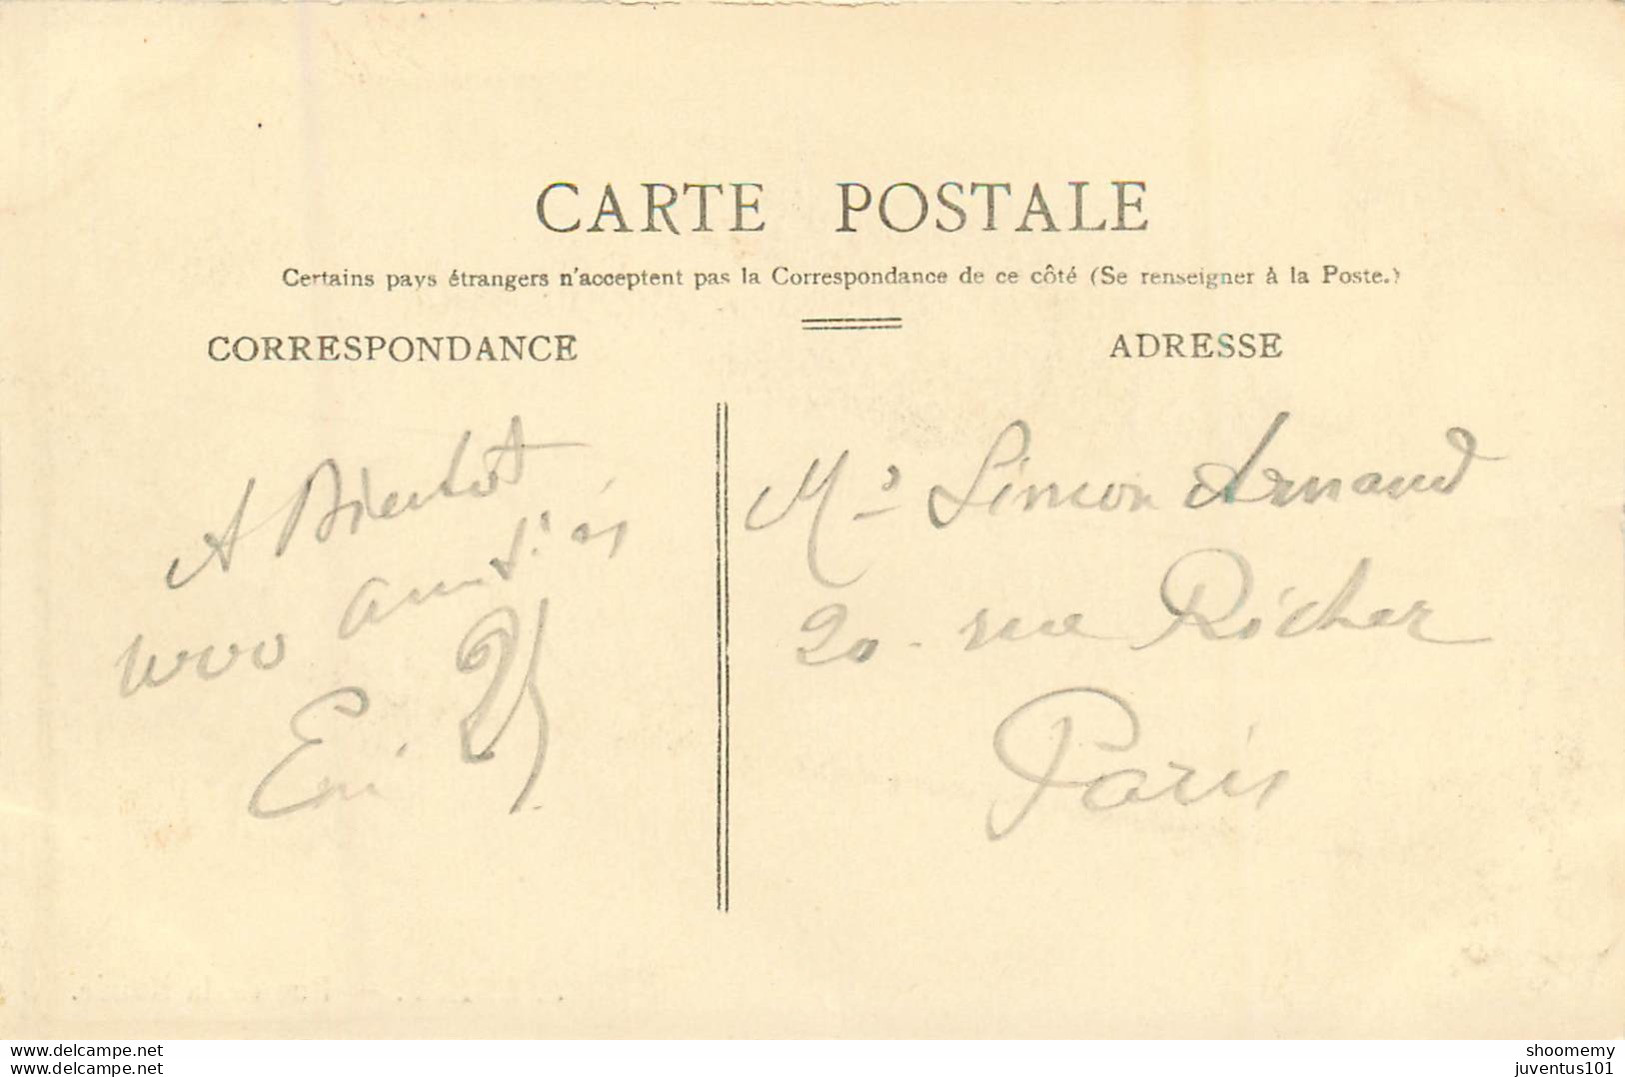 CARTE POSTALE
Certains pays étrangers n'acceptent pas la Correspondance de ce côté (Se renseigner à la Poste.)
CORRESPONDANCE
ADRESSE
A Bientot
amitiés
Mr Simon Arnaud
20 rue Rocher
Paris
www.delcampe.net
www.delcampe.net
shoomemy
juventus101